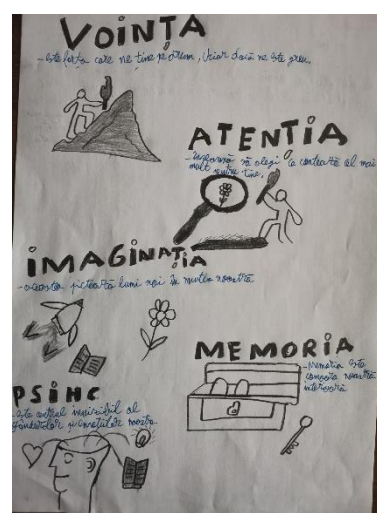 VOINȚA
-este forța care ne ține pe drum, chiar dacă ne este greu.
ATENTIA
-înseamnă să alegi ce contează cel mai
mult pentru tine.
IMAGINAȚIA
-aceasta pictează lumi noi în mintea noastră
MEMORIA
-Memoria este
comoara noastră
interioară
PSIHC
-este centrul invizibil al
gândurilor și emoțiilor noastre.